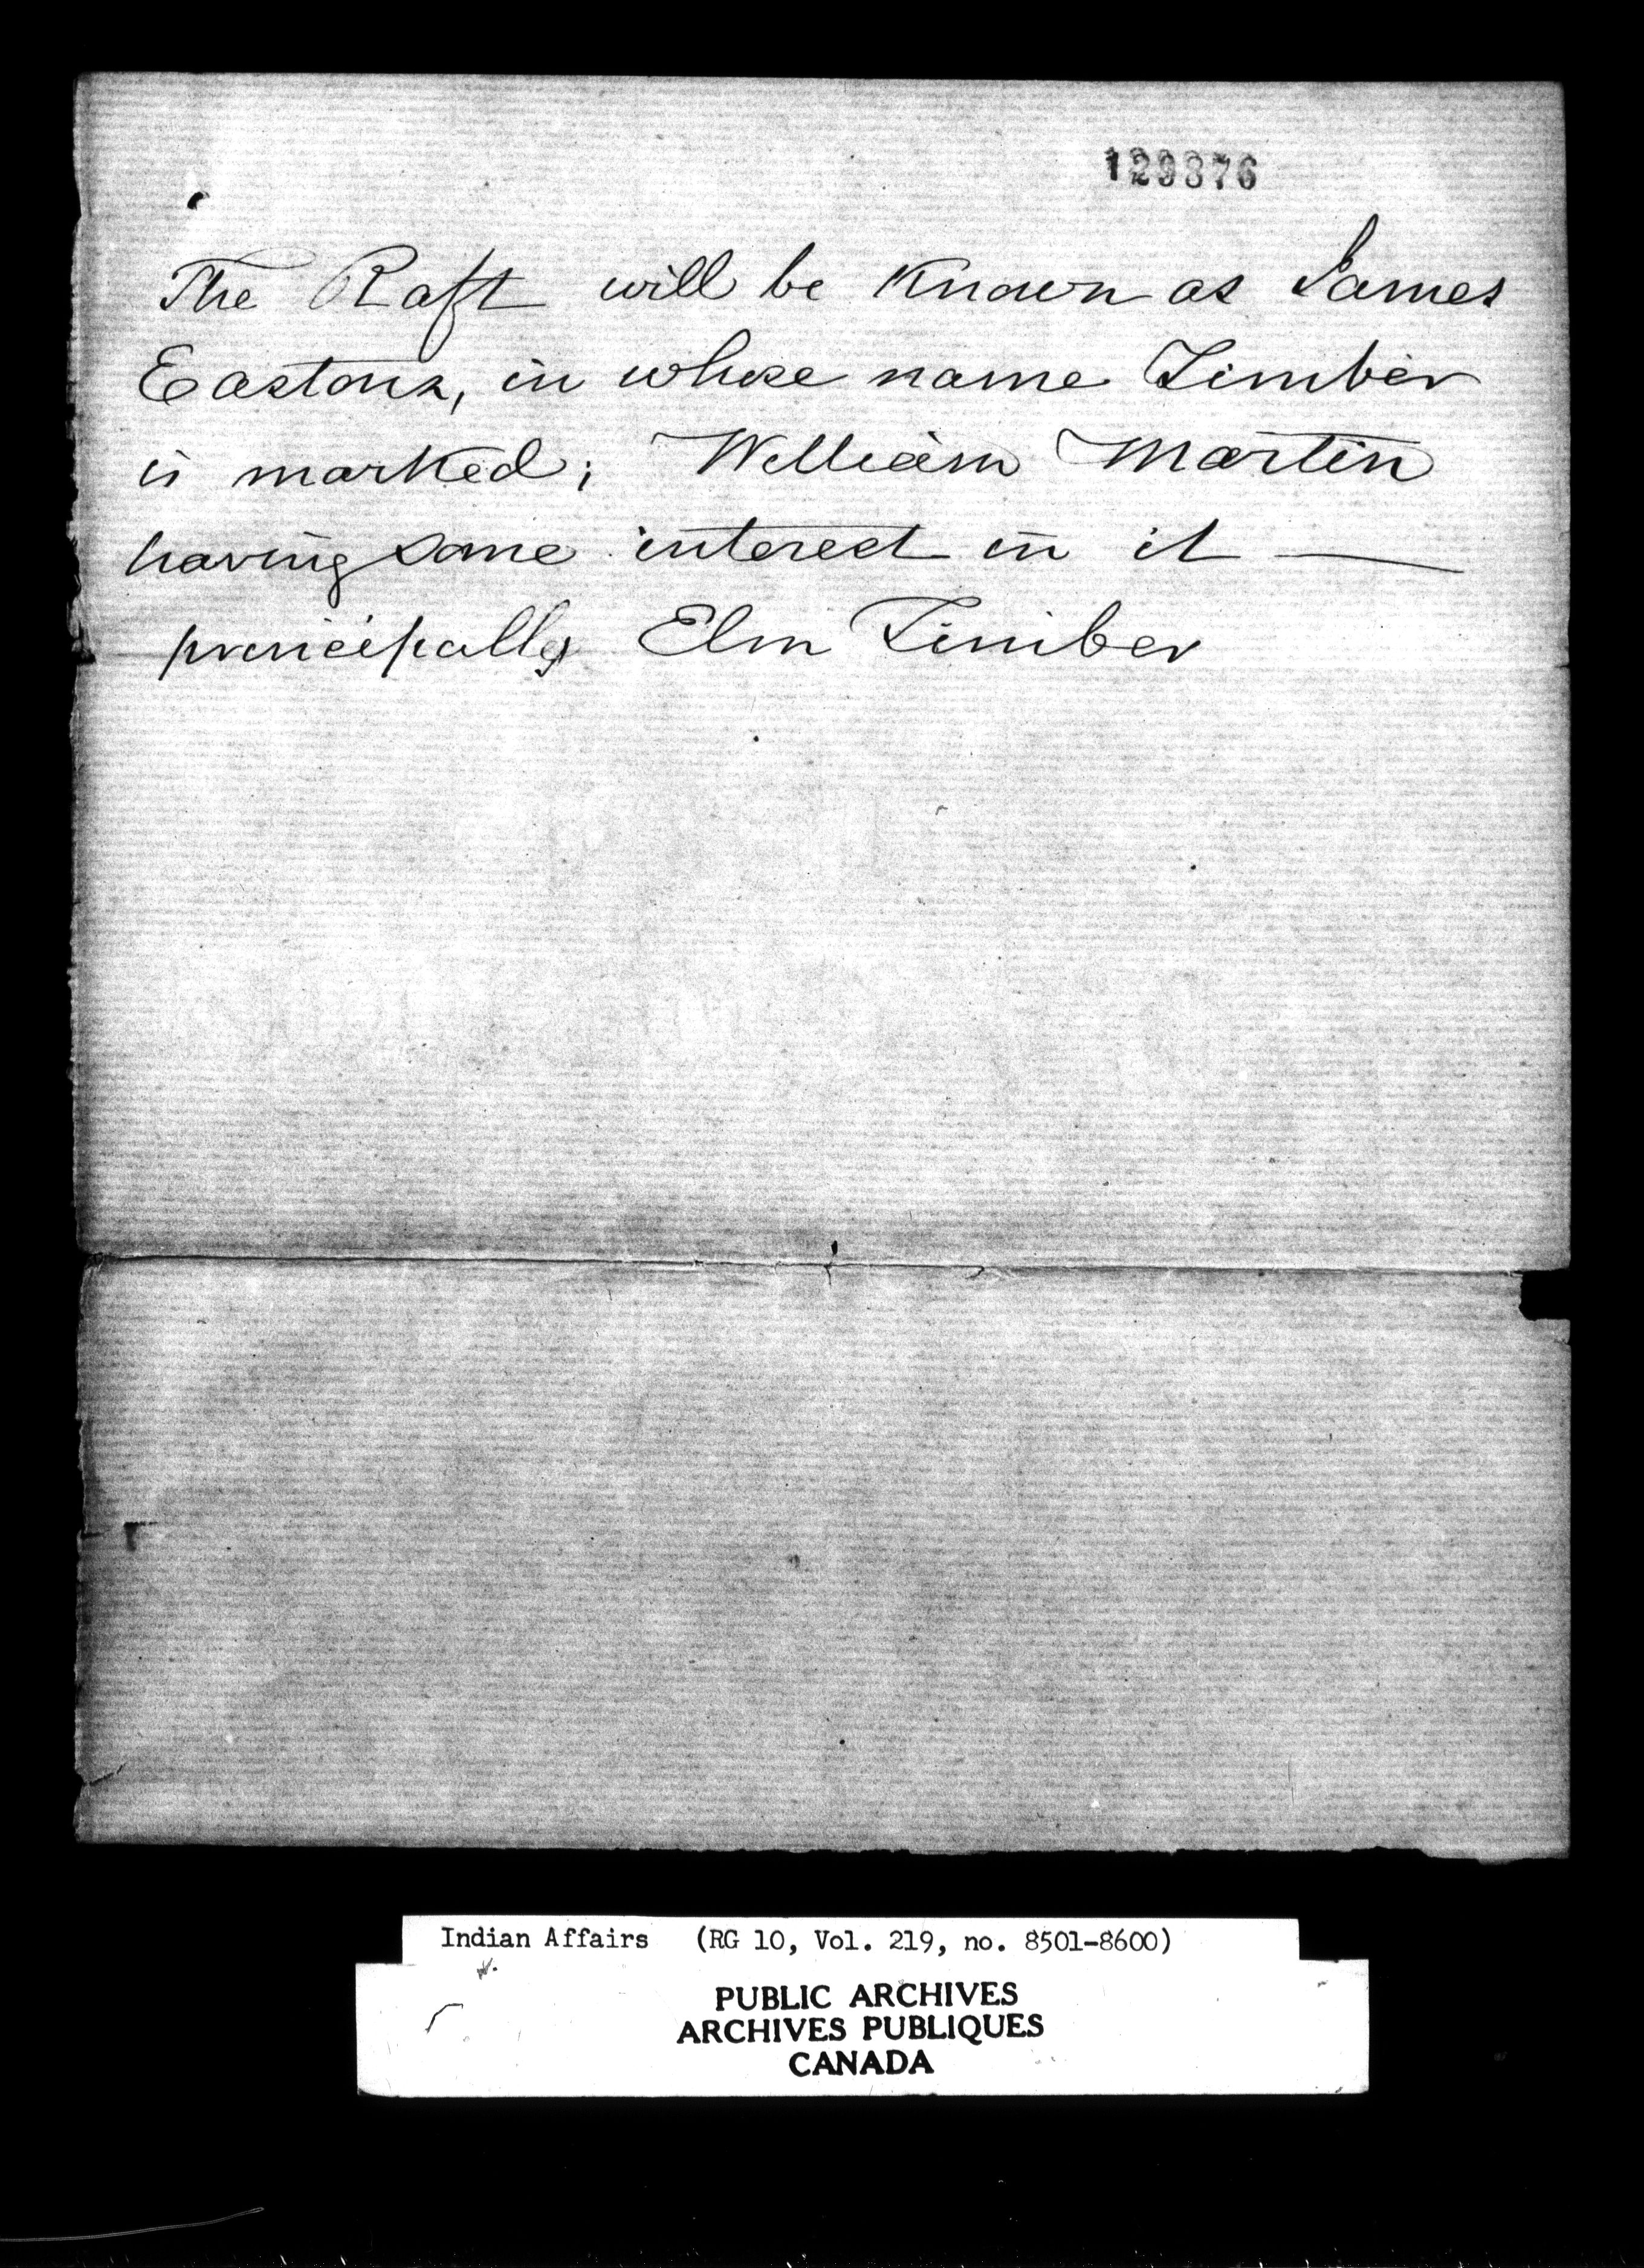 129876
The Raft will be Known as James
Eastons, in whose name Timber
is marked; William Martin
having some interest in it —
principally Elm Timber
Indian Affairs (RG 10, Vol. 219, no. 8501-8600)
PUBLIC ARCHIVES
ARCHIVES PUBLIQUES
CANADA